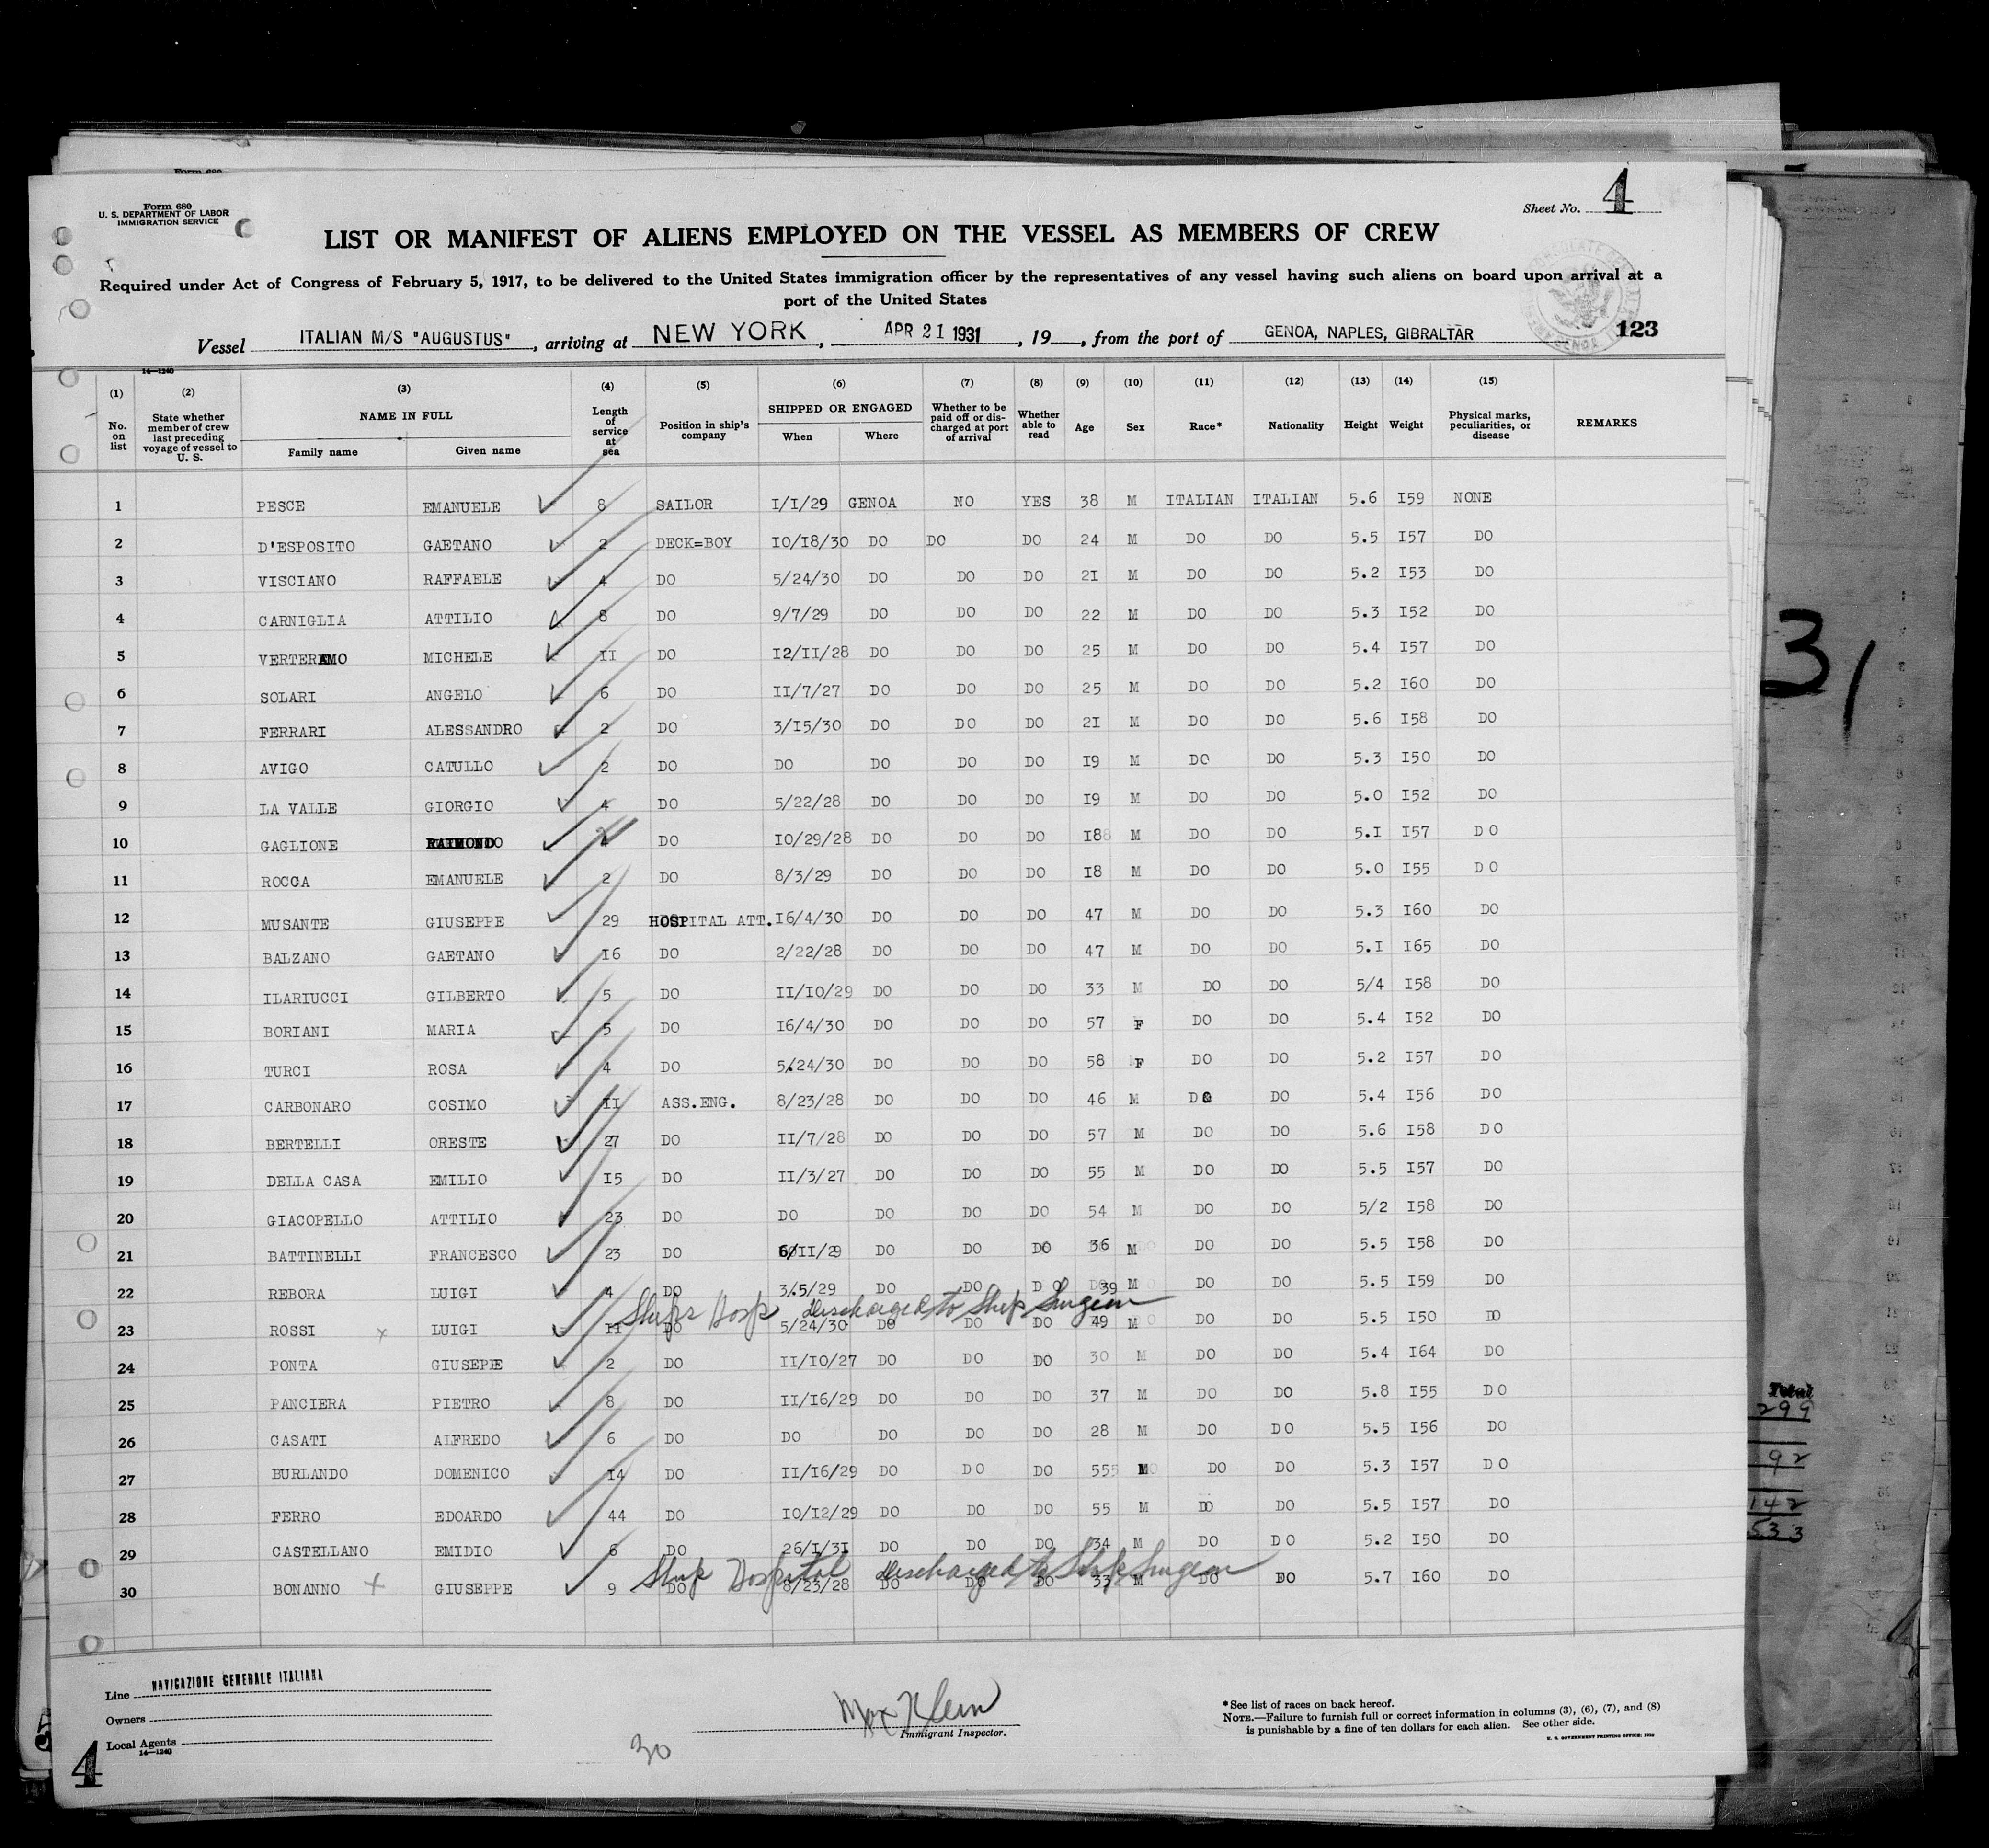 Form 680
U. S. DEPARTMENT OF LABOR
IMMIGRATION SERVICE
Sheet No. 4
LIST OR MANIFEST OF ALIENS EMPLOYED ON THE VESSEL AS MEMBERS OF CREW
Required under Act of Congress of February 5, 1917, to be delivered to the United States immigration officer by the representatives of any vessel having such aliens on board upon arrival at a
port of the United States
Vessel ITALIAN M/S "AUGUSTUS", arriving at NEW YORK, APR 21 1931, 19__, from the port of GENOA, NAPLES, GIBRALTAR 123
14—1240
(1) No. on list (2) State whether member of crew last preceding voyage of vessel to U. S. (3) NAME IN FULL Family name Given name (4) Length of service at sea (5) Position in ship's company (6) SHIPPED OR ENGAGED When Where (7) Whether to be paid off or discharged at port of arrival (8) Whether able to read (9) Age (10) Sex (11) Race* (12) Nationality (13) Height (14) Weight (15) Physical marks, peculiarities, or disease REMARKS
1 PESCE EMANUELE 8 SAILOR I/I/29 GENOA NO YES 38 M ITALIAN ITALIAN 5.6 I59 NONE
2 D'ESPOSITO GAETANO 2 DECK=BOY IO/I8/30 DO DO DO 24 M DO DO 5.5 I57 DO
3 VISCIANO RAFFAELE 4 DO 5/24/30 DO DO DO 2I M DO DO 5.2 I53 DO
4 CARNIGLIA ATTILIO 8 DO 9/7/29 DO DO DO 22 M DO DO 5.3 I52 DO
5 VERTERAMO MICHELE II DO I2/II/28 DO DO DO 25 M DO DO 5.4 I57 DO
6 SOLARI ANGELO 6 DO II/7/27 DO DO DO 25 M DO DO 5.2 I60 DO
7 FERRARI ALESSANDRO 2 DO 3/I5/30 DO DO DO 2I M DO DO 5.6 I58 DO
8 AVIGO CATULLO 2 DO DO DO DO DO I9 M DO DO 5.3 I50 DO
9 LA VALLE GIORGIO 4 DO 5/22/28 DO DO DO I9 M DO DO 5.0 I52 DO
10 GAGLIONE RAIMONDO 4 DO IO/29/28 DO DO DO I88 M DO DO 5.I I57 DO
11 ROCCA EMANUELE 2 DO 8/3/29 DO DO DO I8 M DO DO 5.0 I55 DO
12 MUSANTE GIUSEPPE 29 HOSPITAL ATT. I6/4/30 DO DO DO 47 M DO DO 5.3 I60 DO
13 BALZANO GAETANO I6 DO 2/22/28 DO DO DO 47 M DO DO 5.I I65 DO
14 ILARIUCCI GILBERTO 5 DO II/IO/29 DO DO DO 33 M DO DO 5/4 I58 DO
15 BORIANI MARIA 5 DO I6/4/30 DO DO DO 57 F DO DO 5.4 I52 DO
16 TURCI ROSA 4 DO 5/24/30 DO DO DO 58 F DO DO 5.2 I57 DO
17 CARBONARO COSIMO II ASS.ENG. 8/23/28 DO DO DO 46 M DO DO 5.4 I56 DO
18 BERTELLI ORESTE 27 DO II/7/28 DO DO DO 57 M DO DO 5.6 I58 DO
19 DELLA CASA EMILIO I5 DO II/3/27 DO DO DO 55 M DO DO 5.5 I57 DO
20 GIACOPELLO ATTILIO 23 DO DO DO DO DO 54 M DO DO 5/2 I58 DO
21 BATTINELLI FRANCESCO 23 DO 6/II/29 DO DO DO 36 M DO DO 5.5 I58 DO
22 REBORA LUIGI 4 DO 3/5/29 DO DO DO 39 M DO DO 5.5 I59 DO
Ships Hosp discharged to Ship Surgeon
23 ROSSI x LUIGI II DO 5/24/30 DO DO DO 49 M DO DO 5.5 I50 DO
24 PONTA GIUSEPPE 2 DO II/IO/27 DO DO DO 30 M DO DO 5.4 I64 DO
25 PANCIERA PIETRO 8 DO II/I6/29 DO DO DO 37 M DO DO 5.8 I55 DO
26 CASATI ALFREDO 6 DO DO DO DO DO 28 M DO DO 5.5 I56 DO
27 BURLANDO DOMENICO I4 DO II/I6/29 DO DO DO 555 M DO DO 5.3 I57 DO
28 FERRO EDOARDO 44 DO IO/I2/29 DO DO DO 55 M DO DO 5.5 I57 DO
29 CASTELLANO EMIDIO 6 DO 26/I/3I DO DO DO 34 M DO DO 5.2 I50 DO
Ship Hospital discharged to Ship Surgeon
30 BONANNO x GIUSEPPE 9 DO 8/23/28 DO DO DO 33 M DO DO 5.7 I60 DO
Line NAVIGAZIONE GENERALE ITALIANA
Owners
Local Agents
14—1240
4
30
Max Klein
Immigrant Inspector.
*See list of races on back hereof.
NOTE.—Failure to furnish full or correct information in columns (3), (6), (7), and (8)
is punishable by a fine of ten dollars for each alien. See other side.
U. S. GOVERNMENT PRINTING OFFICE: 1930
31
Total
299
92
142
533